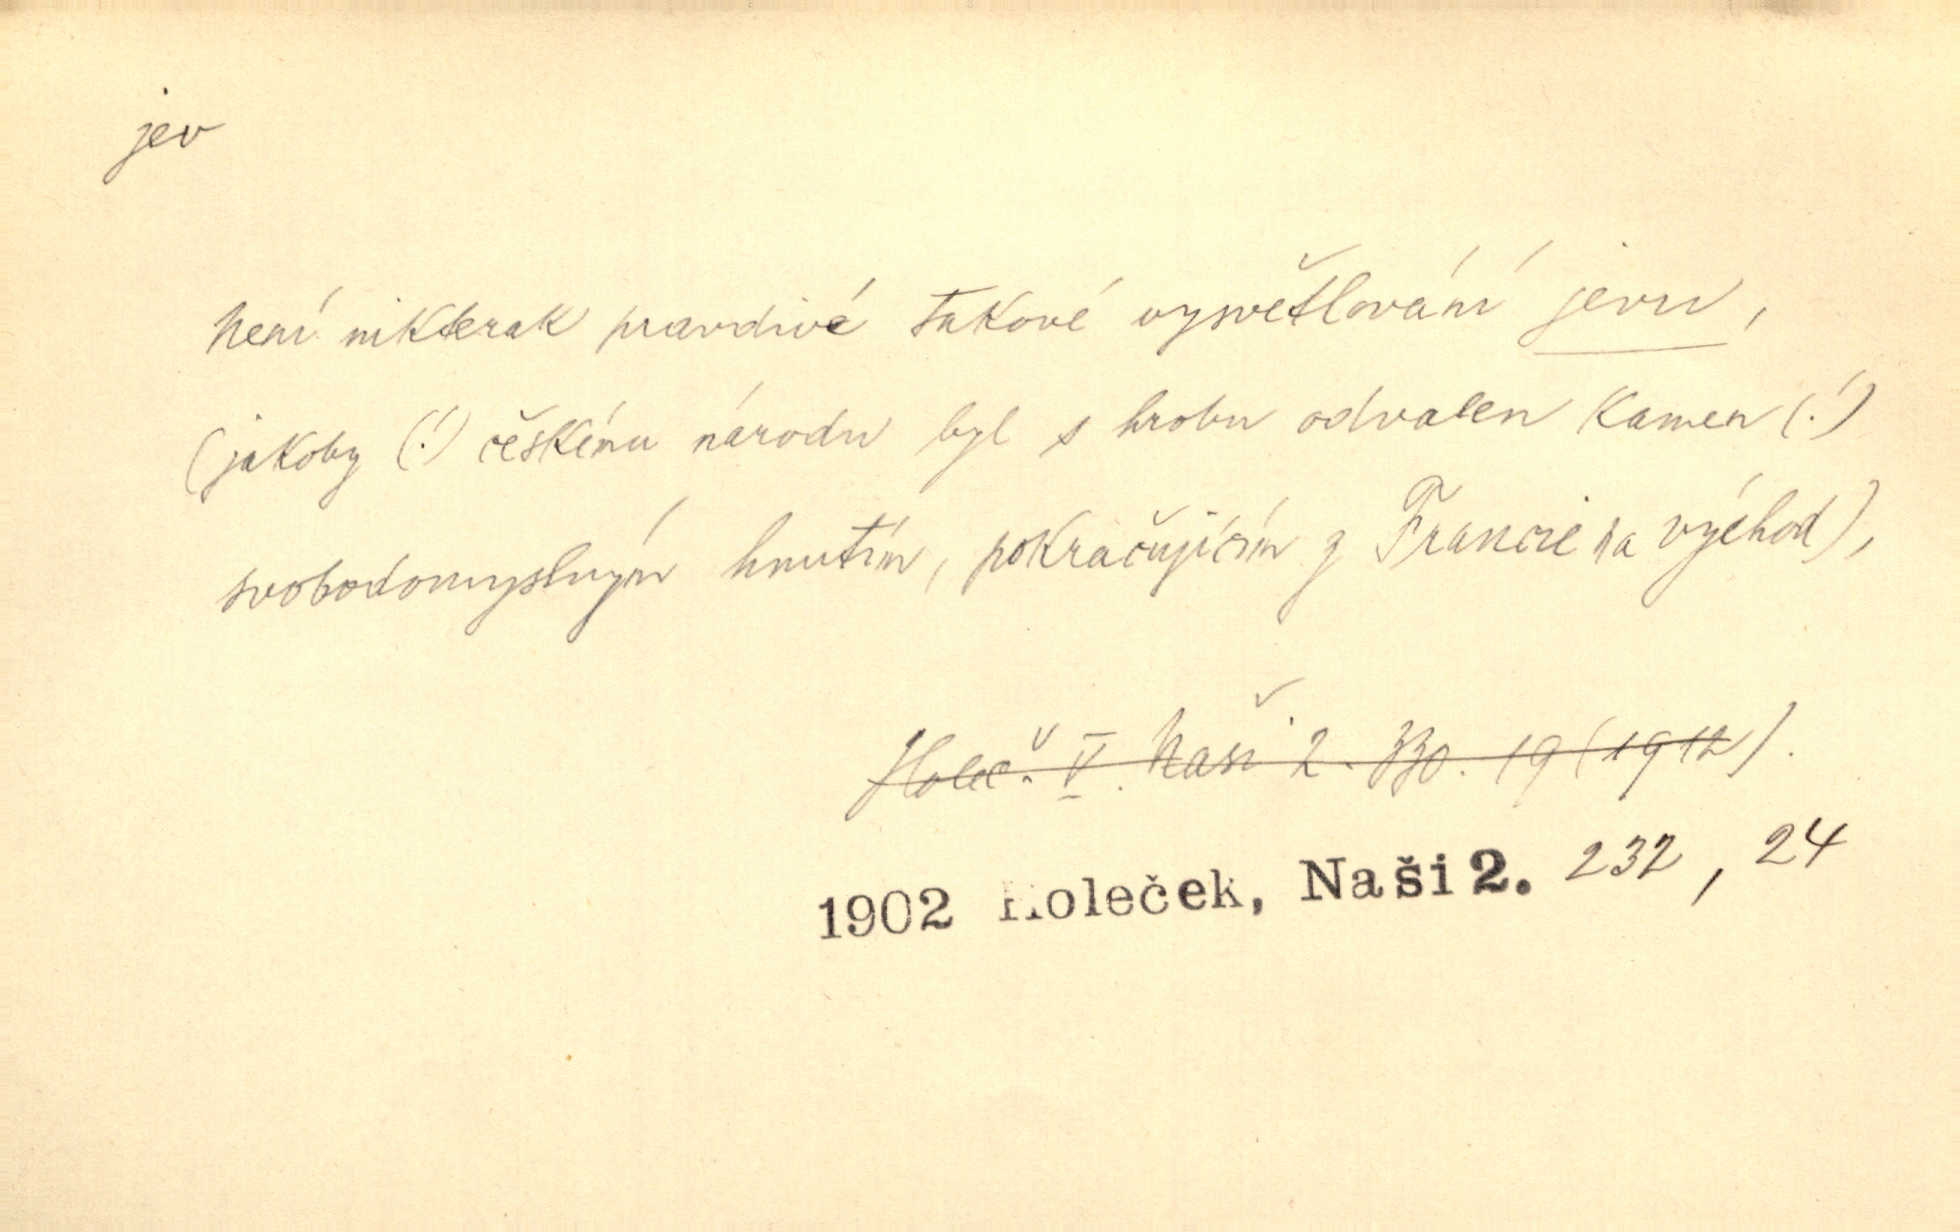 jev
Není nikterak pravdivé takové vysvětlování jevu,
(jakoby (!) českému národu byl s hrobu odvalen kamen (!)
svobodomyslným hnutím, pokračujícím z Francie na východ),
Holeč. V. Naši 2. 330. 19 (1912).
1902 Holeček, Naši 2. 232, 24